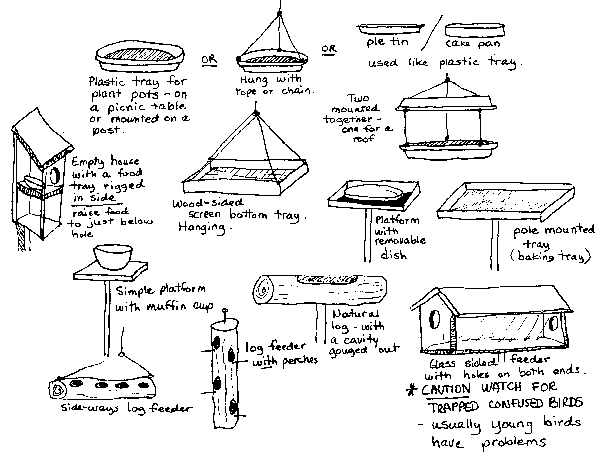 OR
OR
pie tin / cake pan
used like plastic tray.
Plastic tray for
plant pots - on
a picnic table
or mounted on a
post.
Hung with
rope or chain.
Two
mounted
together -
one for a
roof
Empty house
with a food
tray rigged
in side
raise food
to just below
hole
Wood-sided
screen bottom tray.
Hanging.
Platform
with
removable
dish
pole mounted
tray
(baking tray)
Simple platform
with muffin cup
Natural
log - with
a cavity
gouged out
log feeder
with perches
Side-ways log feeder
Glass sided feeder
with holes on both ends.
* CAUTION WATCH FOR
TRAPPED CONFUSED BIRDS
- usually young birds
have problems